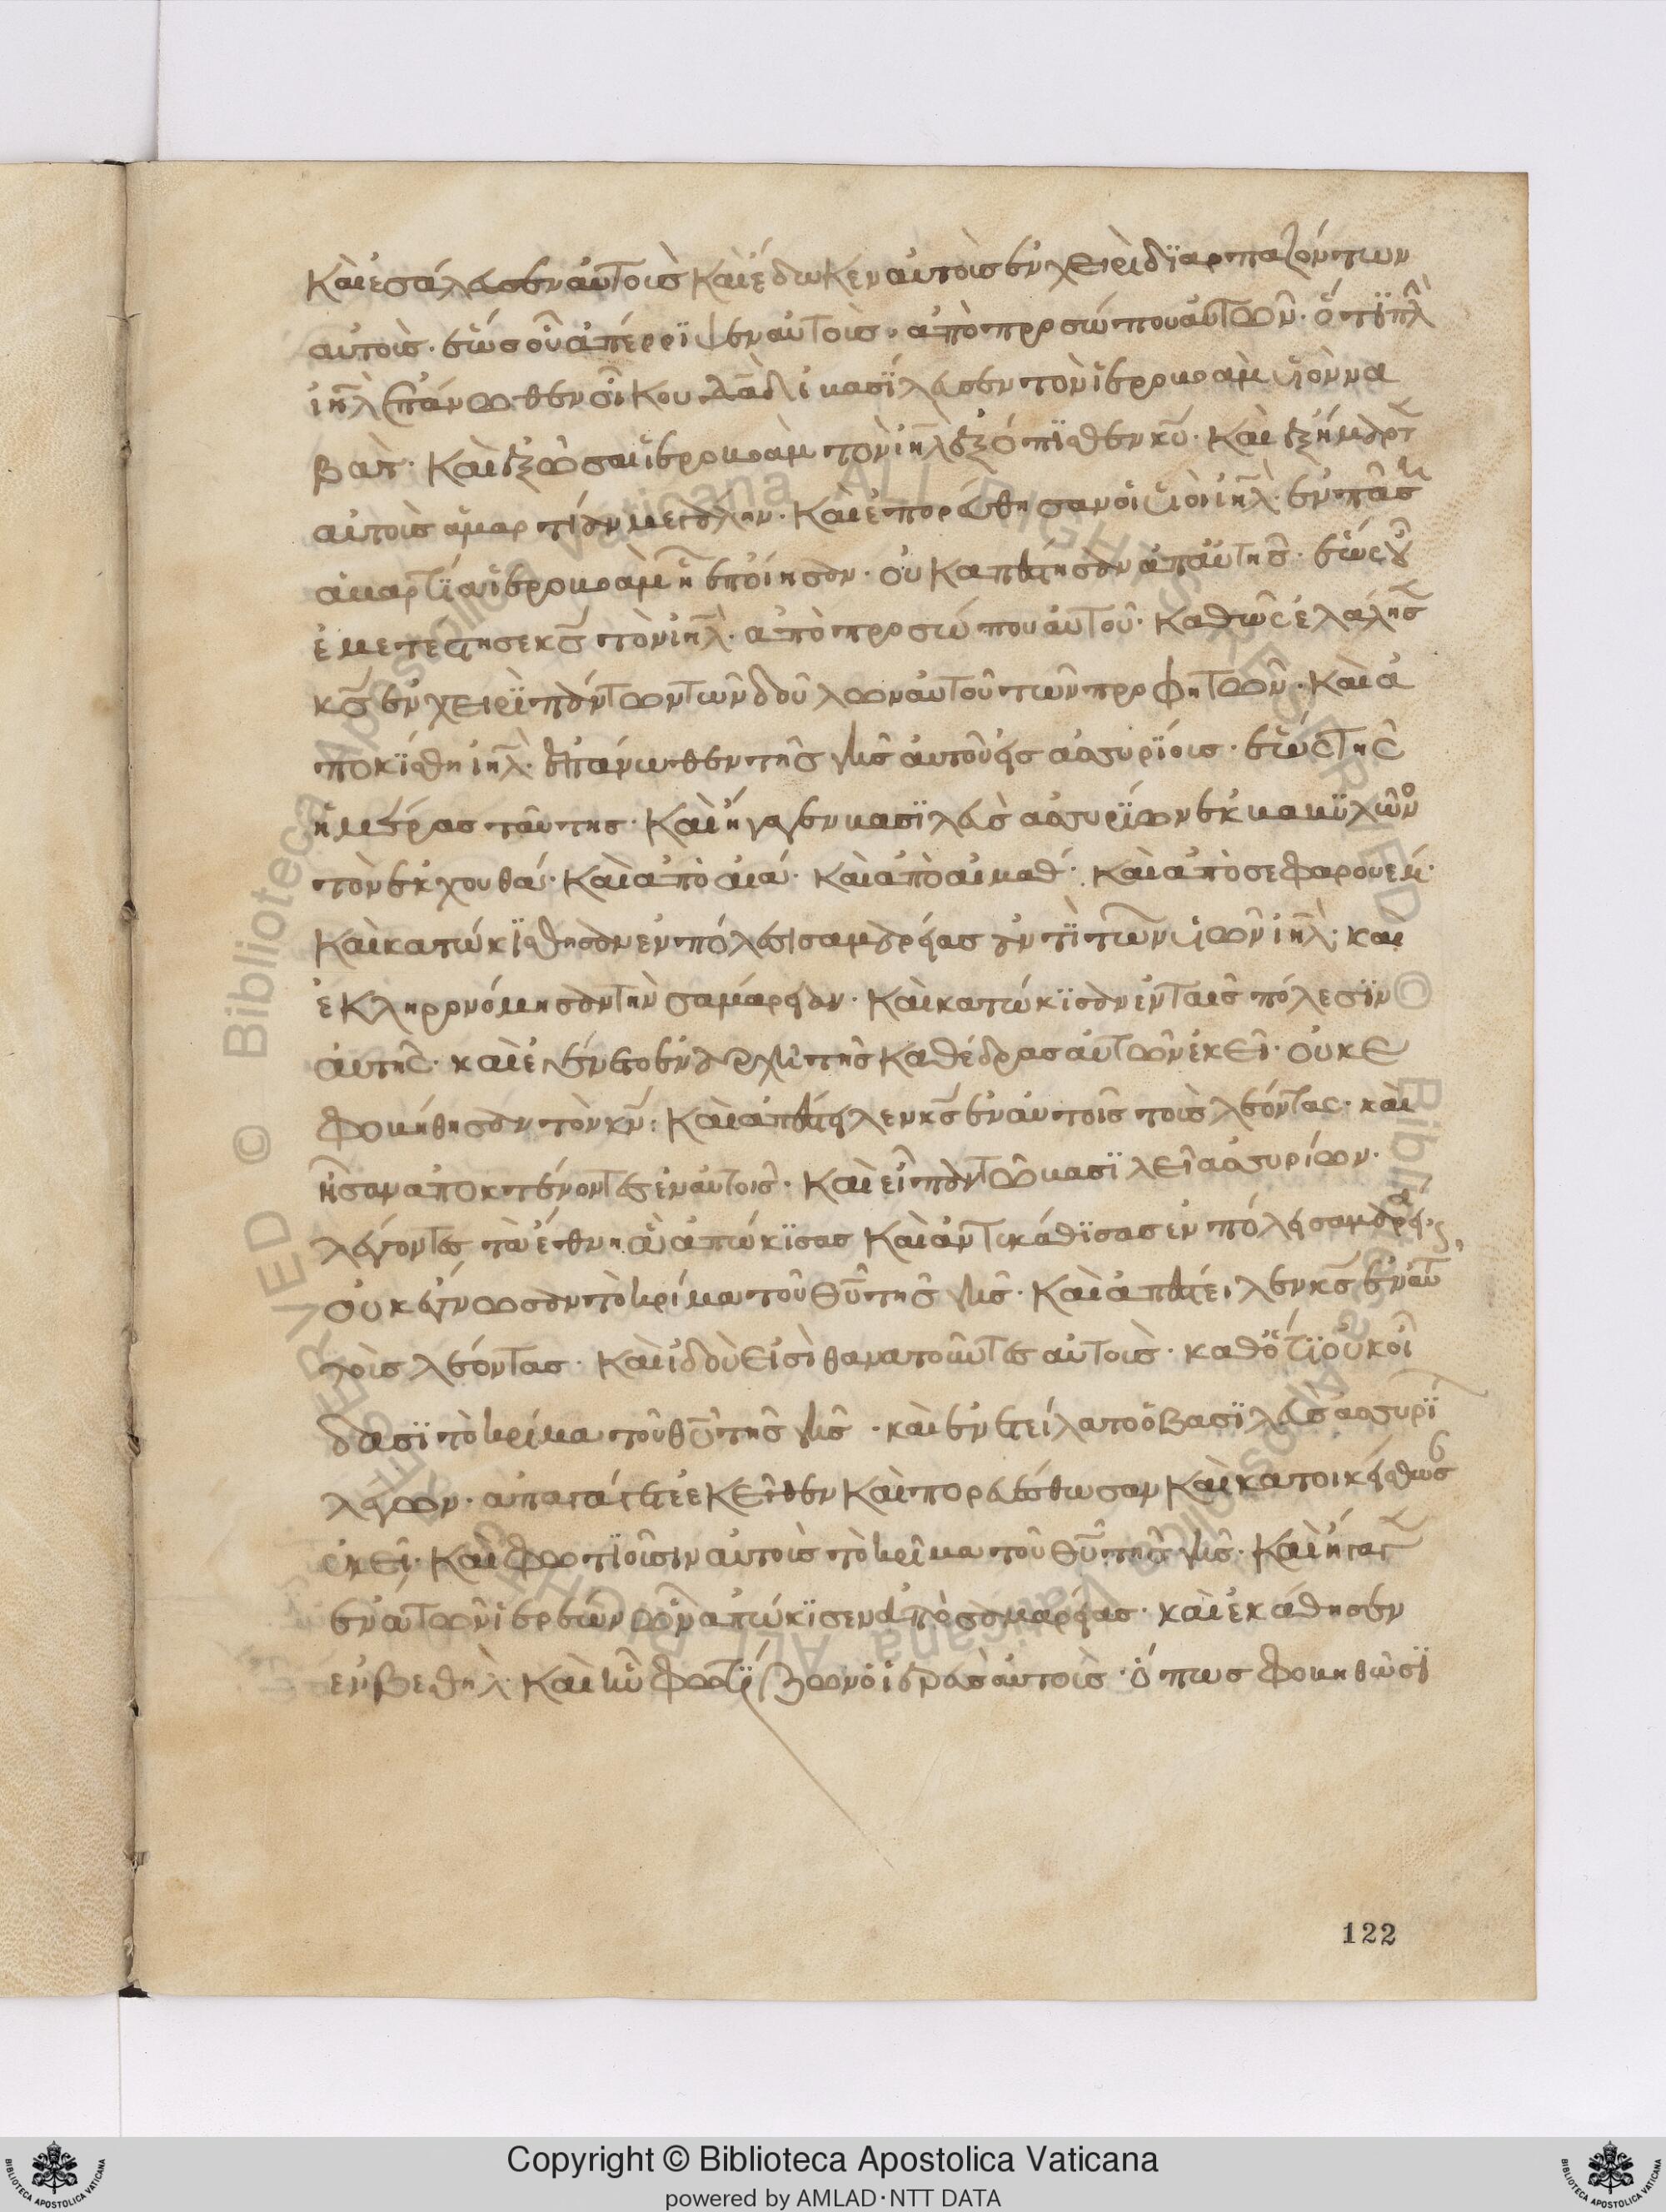 Καὶ ἐσάλευσεν αὐτοὺς Καὶ ἔδωκεν αὐτοὺς ἐν χειρὶ διαρπαζόντων
αὐτούς· ἕως οὗ ἀπέρριψεν αὐτοὺς· ἀπὸ προσώπου αὐτοῦ· ὅτι πλ
ιηλ ἐπάνωθεν οἴκου δαδ
βατ· Καὶ ἐξῶσαι ἱεροβοὰμ τὸν ιηλ ἐξόπισθεν κυ· Καὶ ἐξήμαρτ
αὐτοὺς ἁμαρτίαν μεγάλην· Καὶ ἐπορεύθησαν οἱ υἱοὶ ιηλ· ἐν πάσ
ἁμαρτία ἱεροβοὰμ ἧ ἐποίησαν· οὐκ ἀπέστησαν ἀπ' αὐτῆς· ἕως οὗ
ἐμετέστησε κς τὸν ιηλ· ἀπὸ προσώπου αὐτοῦ· Καθὼς ἐλάλησ
κς ἐν χειρὶ πάντων τῶν δούλων αὐτοῦ τῶν προφητῶν· Καὶ ἀ
ποκίσθη ιηλ· ἐπάνωθεν τῆς γῆς αὐτοῦ εἰς ἀσσυρίους· ἕως τῆς
ἡμέρας ταύτης· Καὶ ἤγαγεν βασιλεὺς ἀσσυρίων ἐκ βαβυλῶνο
τὸν ἐκ χουθά· Καὶ ἀπὸ αιά· Καὶ ἀπὸ αἰμάθ· Καὶ ἀπὸ σεφαρουεμ·
Καὶ κατώκίσθησαν ἐν πόλεσι σαμαρείας ἀντὶ τῶν υἱῶν ιηλ· καὶ
ἐκληρονόμησαν τὴν σαμάρειαν· Καὶ κατώκισαν ἐν ταῖς πόλεσιν
αὐτῆς· καὶ ἐγένετο ἐν ἀρχῆ τῆς καθέδρας αὐτῶν ἐκεῖ· οὐκ ἐ
φοβήθησαν τὸν κν· Καὶ ἀπέστειλεν κς ἐν αὐτοῖς τοὺς λέοντας· καὶ
ἦσαν ἀποκτένοντες ἐν αὐτοῖς· Καὶ εἶπαν τῶ βασιλεῖ ἀσσυρίων·
λέγοντες τὰ ἔθνη ἃ ἀπώκισας Καὶ ἀντικάθισας ἐν πόλεσι σαμαρείας
οὐκ ἔγνωσαν τὸ κρίμα τοῦ θυ τῆς γῆς· Καὶ ἀπέστειλεν κς ἐν αὐ
τοὺς λέοντας· Καὶ ἰδοὺ εἰσὶ θανατοῦντες αὐτοὺς· καθότι οὐκ οἴ
δασι τὸ κρίμα τοῦ θυ τῆς γῆς· καὶ ἐνετείλατο ὁ βασιλεὺς ἀσσυρί
λέγων· ἀπατάγετε ἐκεῖθεν Καὶ πορευέσθωσαν Καὶ κατοικείσθωσ
ἐκεῖ· Καὶ φωτιοῦσιν αὐτοὺς τὸ κρίμα τοῦ θυ τῆς γῆς· Καὶ ἤγαγ
ἕν αὐτῶν ἱερέων ὧν ἀπώκισεν ἀπὸ σαμαρείας· καὶ ἐκάθησεν
ἐν βεθήλ· Καὶ ἦν φωτίζων αὐτοὺς· ὅπως φοβηθῶσι
122
Copyright © Biblioteca Apostolica Vaticana
powered by AMLAD·NTT DATA